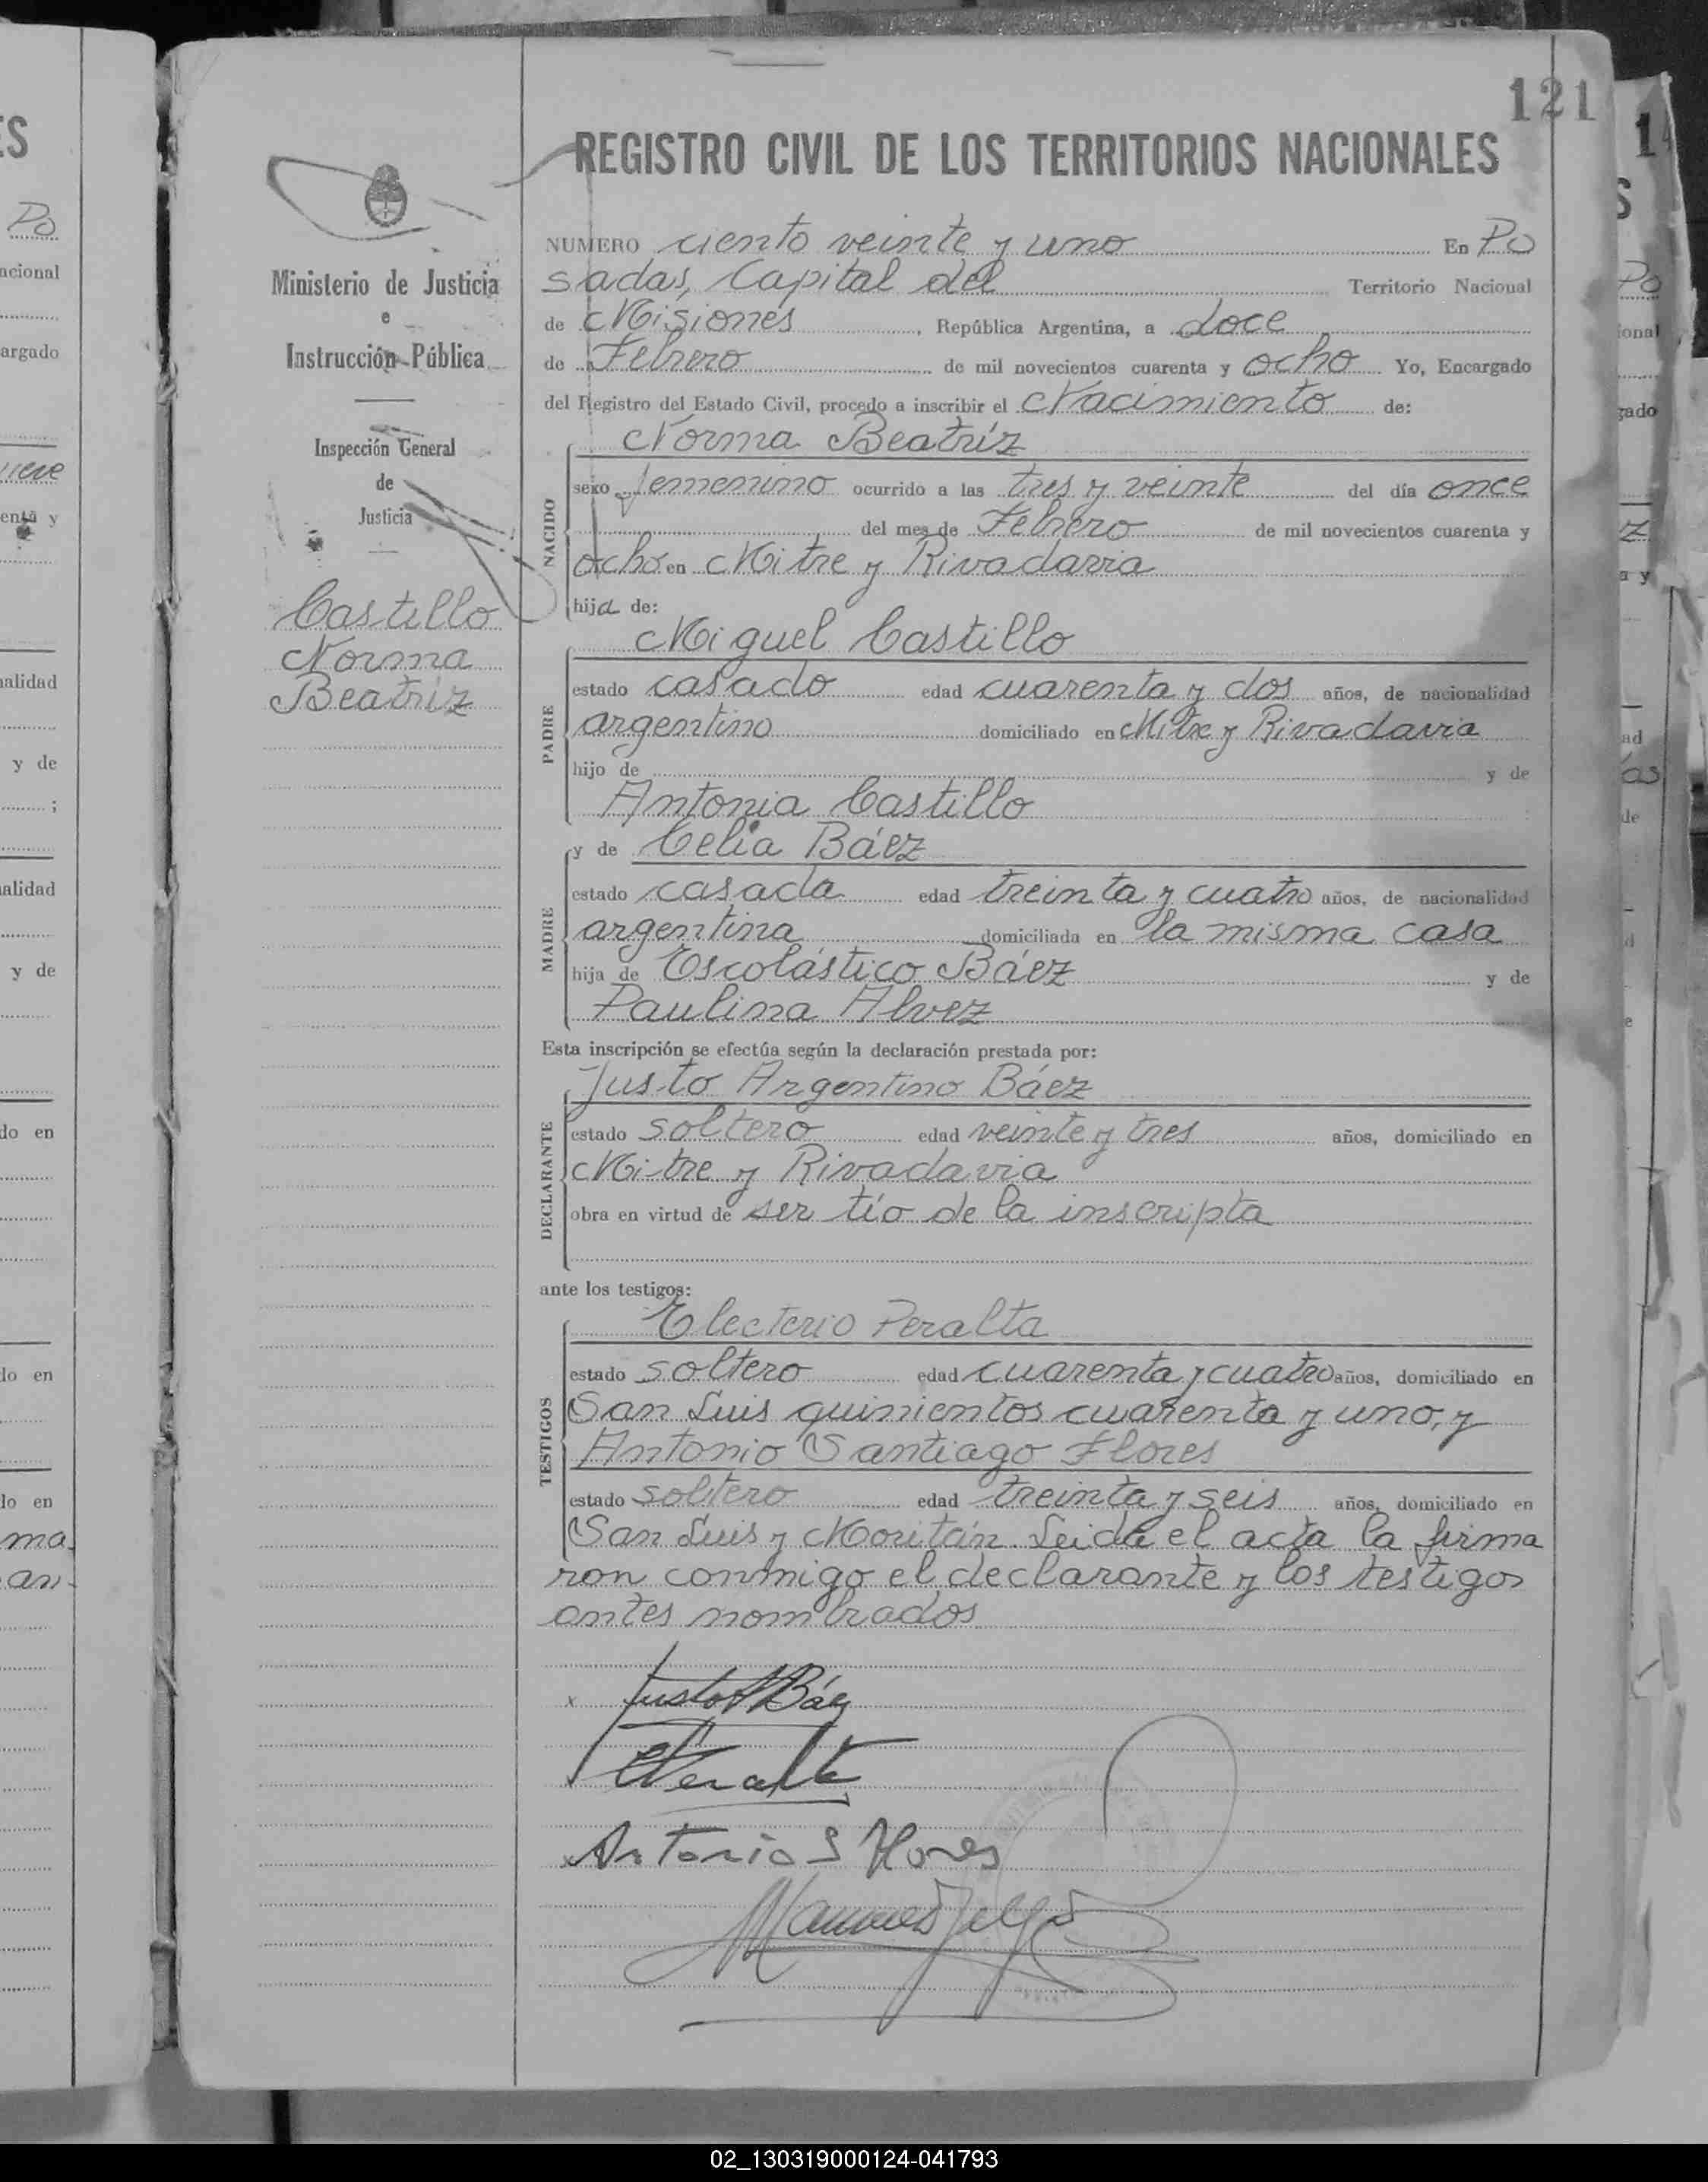 121
REGISTRO CIVIL DE LOS TERRITORIOS NACIONALES
Ministerio de Justicia
e
Instrucción Pública
Inspección General
de
Justicia
Castillo
Norma
Beatríz
NUMERO ciento veinte y uno En Po
sadas, Capital del Territorio Nacional
de Misiones, República Argentina, a doce
de Febrero de mil novecientos cuarenta y ocho Yo, Encargado
del Registro del Estado Civil, procedo a inscribir el Nacimiento de:
NACIDO
Norma Beatríz
sexo femenino ocurrido a las tres y veinte del día once
del mes de Febrero de mil novecientos cuarenta y
ocho en Mitre y Rivadavia
hija de:
PADRE
Miguel Castillo
estado casado edad cuarenta y dos años, de nacionalidad
argentino domiciliado en Mitre y Rivadavia
hijo de y de
Antonia Castillo
MADRE
y de Celia Báez
estado casada edad treinta y cuatro años, de nacionalidad
argentina domiciliada en la misma casa
hija de Escolástico Báez y de
Paulina Alvez
Esta inscripción se efectúa según la declaración prestada por:
DECLARANTE
Justo Argentino Báez
estado soltero edad veinte y tres años, domiciliado en
Mitre y Rivadavia
obra en virtud de ser tío de la inscripta
ante los testigos:
TESTIGOS
Electerio Peralta
estado soltero edad cuarenta y cuatro años, domiciliado en
San Luis quinientos cuarenta y uno, y
Antonio Santiago Flores
estado soltero edad treinta y seis años, domiciliado en
San Luis y Moritán. Leida el acta la firma
ron conmigo el declarante y los testigos
antes nombrados
x Justo A Báez
E Peralta
x Antonio S Flores
02_130319000124-041793